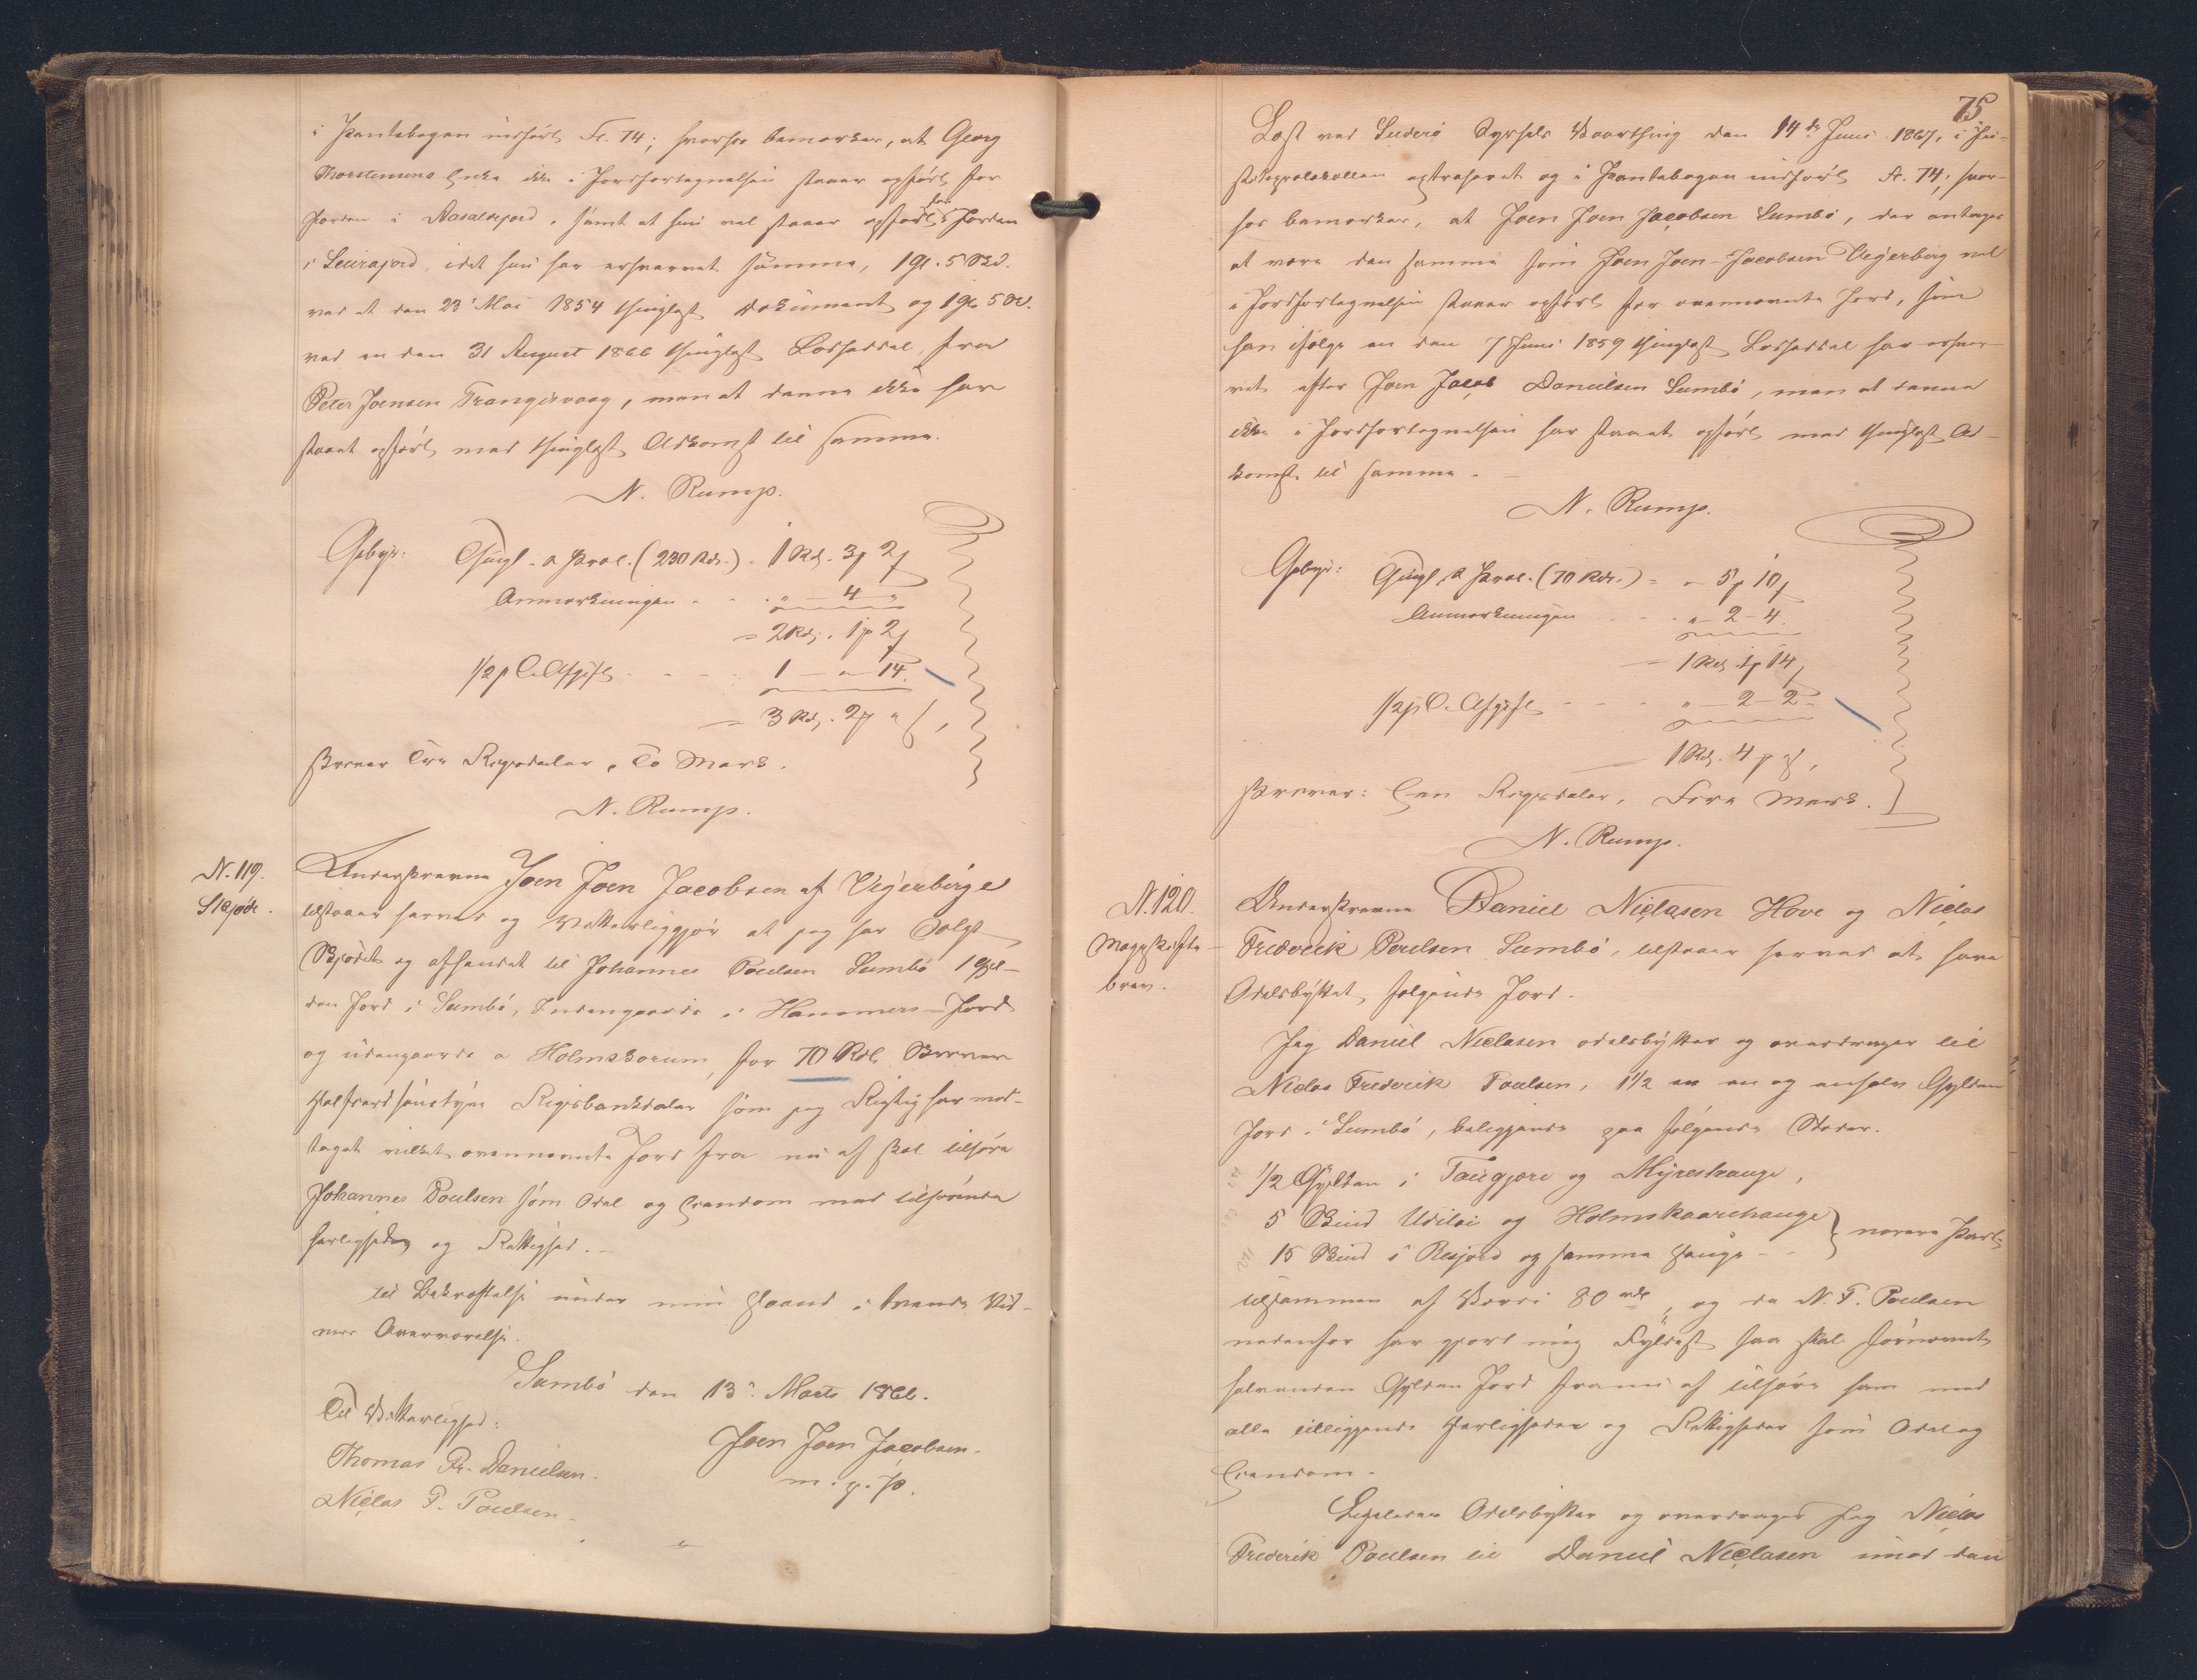 i Pantebogen indført Fol. 74; hvorfor bemærkes, at Georg
Thorstensens Enke ikke i Jordfortegnelsen staaer opført for
Jorden i Aasaldsjord, samt at hun vel staaer opført for Jorden
i Leirajord, idet hun har erhvervet samme, 1 Gl. 5 Skd.
ved et den 23 Mai 1854 thinglæst Dokument og 1 Gl. 5 Sk.
ved en den 31 August 1866 thinglæst Lodseddel, fra
Peter Joensen Trangisvaag, men at denne ikke har
staaet opført med thinglæst Adkomst til samme.
N. Rump.
Gebyr: Thingl. & Prot. (230 Rdr.) . 1 Rd. 3 p 2 f
Anmærkningen . . . " — 4 "
= 2 Rd. 1 p 2 f
1/2 p C. Afgift . . . 1 — " — 14.
= 3 Rd. 2 p " f,
skriver Tre Rigsdaler, To Mark.
N. Rump.
N. 119.
Skjøde.
Underskrevne Joen Joen Jacobsen af Vejerberge
tilstaaer herved og Vitterliggjør at jeg har Solgt
Skjødet og afhændet til Johannes Poulsen Sumbø 1 Gyl-
den Jord i Sumbø, Indengaards i Hammers-Jord
og udengaards a Holmskorum, for 70 Rdl. Skriver
Halvfierdsindstyve Rigsbankdaler som jeg Rigtig har mod-
taget vilket ovennævnte Jord fra nu af skal tilhøre
Johannes Poulsen som Odel og Eiendom med tilhørende
herligheder og Rettighed. –
til Bekræftelse under min Haand i tvende Vid-
ners Overværelse.
Sumbø den 13de Marts 1866.
Til Vitterlighed:
Joen Joen Jacobsen.
Thomas Pr. Danielsen.
m. f. P.
Niclas F. Poulsen.
75
Læst ved Suderø Syssels Vaarthing den 14de Juni 1867, i Ju-
stitsprotokollen extraheret og i Pantebogen indført Fol. 74; hvor-
for bemærkes, at Joen Joen Jacobsen Sumbø, der antages
at være den samme som Joen Joen-Jacobsen Vejerberg vel
i Jordfortegnelsen staaer opført for ovennævnte Jord, som
han ifølge en den 7 Juni 1859 thinglæst Lodseddel har erhver-
vet efter Joen Jacob Danielsen Sumbø, men at denne
ikke i Jordfortegnelsen har staaet opført med thinglæst Ad-
komst til samme. –
N. Rump.
Gebyr: Thingl. & Prot. (70 Rdr.) = " 5 p 10 f
Anmærkningen . . . " — 2 — 4.
— 1 Rd. 1 p 14 f
1/2 p C. Afgift . . . " — 2 — 2 —
— 1 Rd. 4 p " f,
skriver: Een Rigsdaler, Fire Mark.
N. Rump.
N. 120.
Mageskifte-
brev.
Underskrevne Daniel Niclasen Hove og Niclas
Frederik Poulsen Sumbø, tilstaaer herved at have
Odelsbyttet følgende Jord.
Jeg Daniel Niclasen odelsbytter og overdrager til
Niclas Frederik Poulsen, 1 1/2 en og en halv Gylden
Jord i Sumbø, beliggende paa følgende Steder.
1/2 Gylden i Taugjære og Myrestange,
5 Skind Udiloi og Holmskaarehauge } nørre Part
15 Skind i Resjord og samme Hauge – –
tilsammen af Værdi 80 rdl, og da N. F. Poulsen
nedenfor har gjort mig Fyldest saa skal fornævnte
halvanden Gylden Jord fra nu af tilhøre ham med
alle tilliggende Herligheder og Rettigheder som Odel og
Eiendom.
Ligeledes Odelsbytter og overdrager Jeg Niclas
Frederik Poulsen til Daniel Niclasen imod den